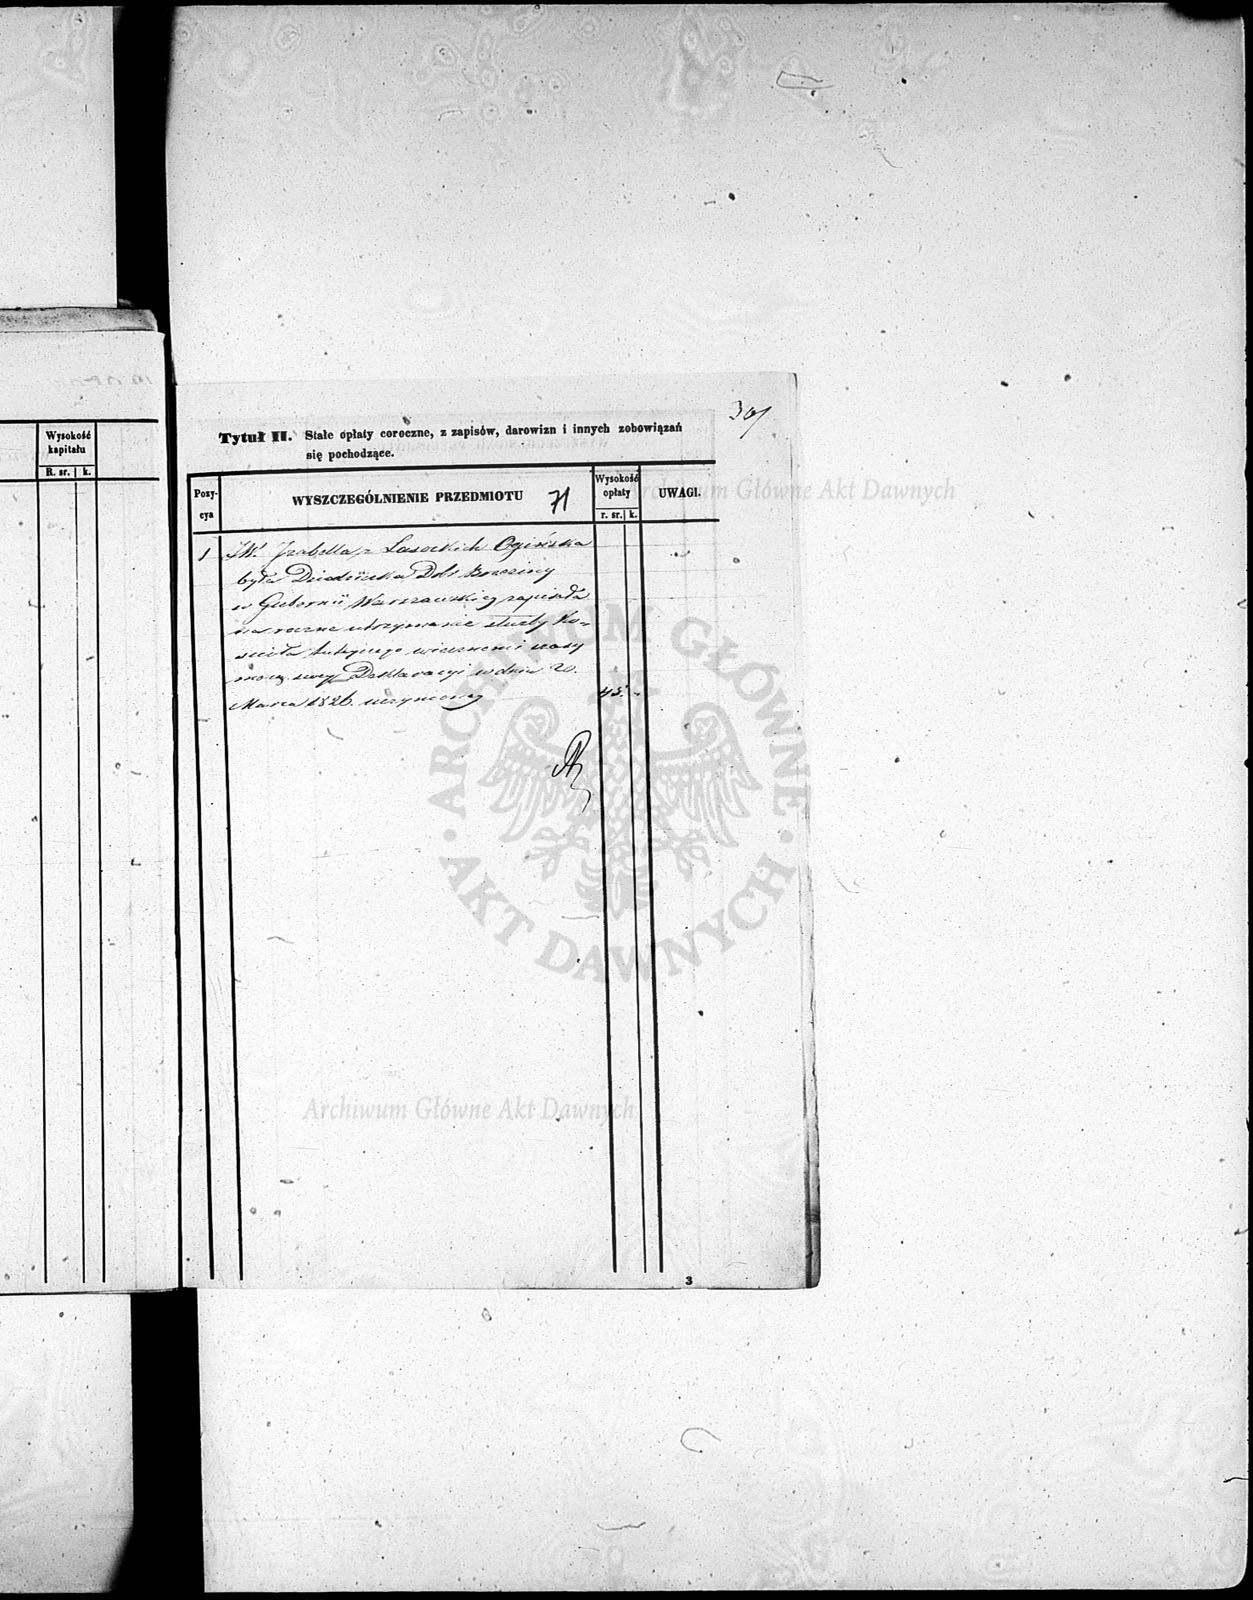 Wysokość
kapitału
R. sr. k.
Tytuł II. Stałe opłaty coroczne, z zapisów, darowizn i innych zobowiązań
się pochodzące.
Pozy-
cya
WYSZCZEGÓLNIENIE PRZEDMIOTU 71
Wysokość
opłaty
r. sr. k.
UWAGI.
1 JW. Izabella z Lasockich Ogińska
była Dziedziczka Dóbr Brzeziny
w Gubernii Warszawskiej zapisała
na roczne utrzymanie służby Ko-
ścioła tutejszego wiecznemi czasy
mocą swej Deklaracyi w dniu 20.
Marca 1826. uczynionej 45. -
3
Archiwum Główne Akt Dawnych
ARCHIWUM GŁÓWNE
AKT DAWNYCH
Archiwum Główne Akt Dawnych